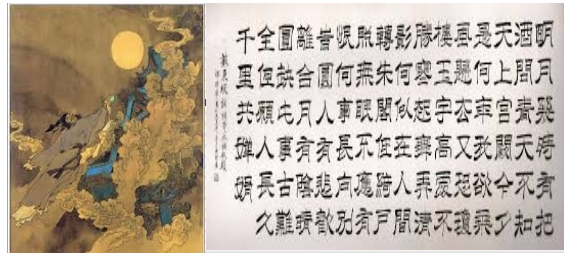 明月幾時有把
酒問青天不知
天上宮闕今夕
是何年我欲乘
風歸去又恐瓊
樓玉宇高處不
勝寒起舞弄清
影何似在人間
轉朱閣低綺戶
照無眠不應有
恨何事長向別
時圓人有悲歡
離合月有陰晴
圓缺此事古難
全但願人長久
千里共嬋娟